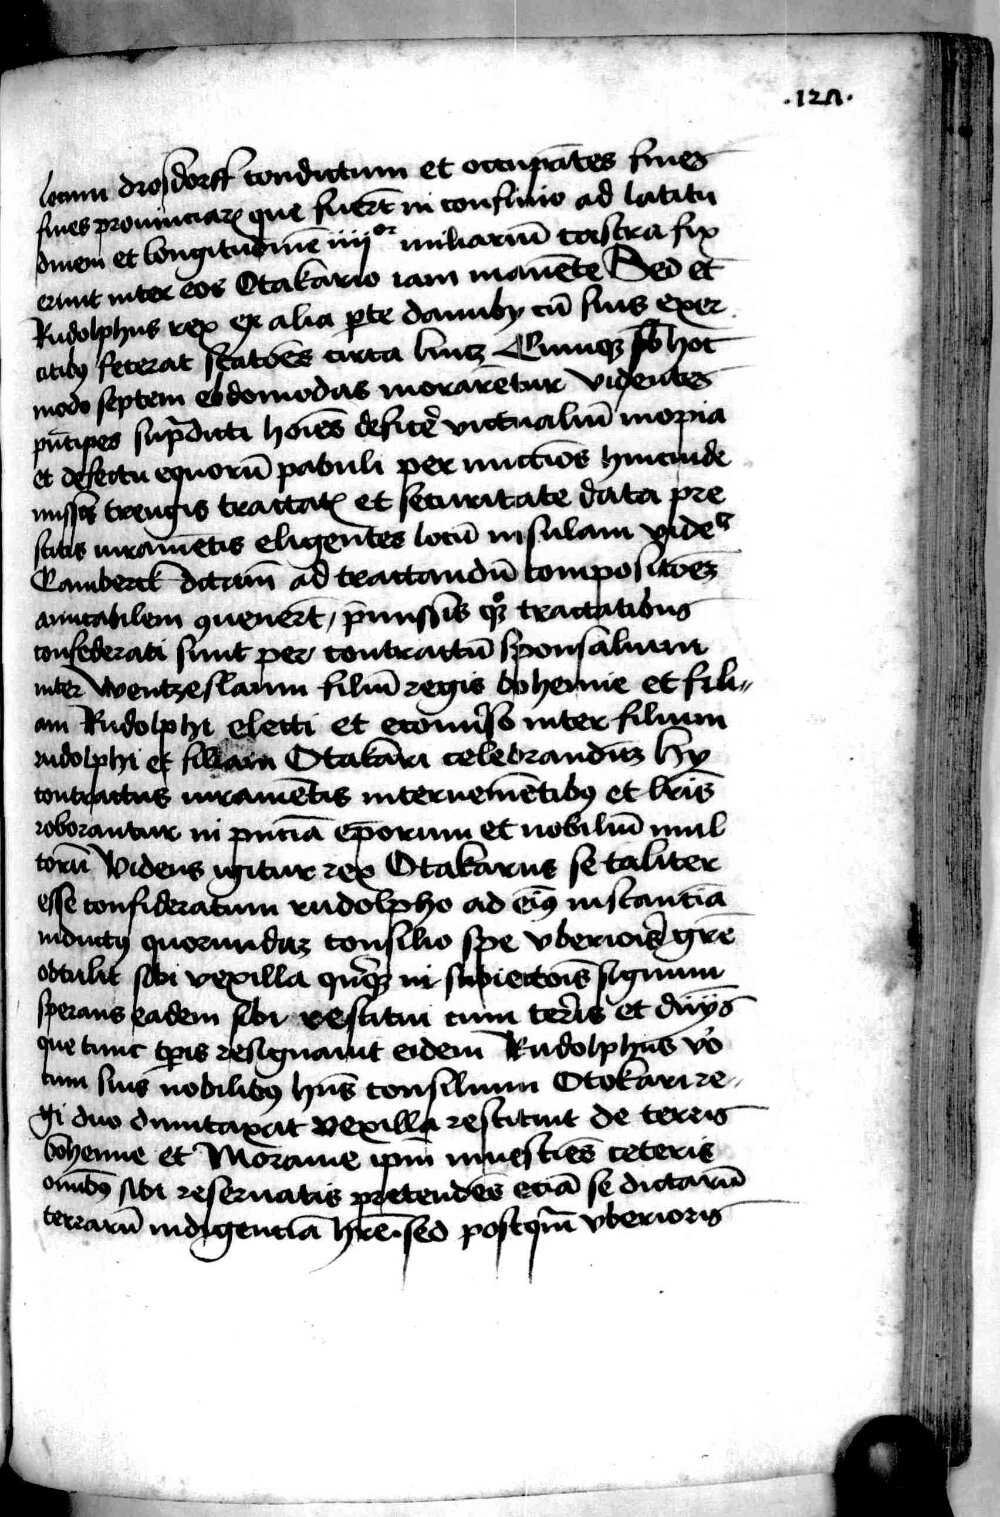 .127.
locum drosdorff condictum et occupātes fines
fines prouinciaꝝ que fuerūt in confinio ad latitu
dinem et longitudinē iiijᵒʳ miliariū castra fix
erunt inter eos Otakario iam manēte Sed et
Rudolphus rex ex alia ꝑte danuby cū suis exer
citibꝰ fecerat statōēs circa lincz Cumqꝫ sub hoc
modo septem ebdomodas morarētur videntes
prīcipes supradicti hoīes deficēr victualiū inopia
et defectu equorū pabuli per nuncios hincinde
missis treugis tractatꝭ et securitate data pre
stitis iuramētis eligentes locū insulam videlꝫ
Camberck dictam ad tractandū compositōeꝫ
amicabilem ꝯuenerūt, p̄missis qꝫ tractatibus
confederati sunt per contractū sponsalium
inter Wentzeslaum filiū regis bohemie et fili-
am Rudolphi electi et econuerso inter filium
rudolphi et filiam Otakari celebrandūꝫ hy
contractus iuramētis interuenientibꝰ et lr̄is
roborantur in pn̄ciā ep̄orum et nobiliū mul
torū Videns igitur rex Otakarus se taliter
esse confideratum rudolpho ad eiꝰ instantiā
inductꝰ quorundaꝫ consilio spe vberioris gr̄e
obtulit sibi vexilla qn̄qꝫ in subiectōis signum
sperans eadem sibi restitui cum terris et dn̄ijs
que tunc tp̄is resignauit eidem Rudolphus vo
cum suis nobilibꝰ hn̄s consilium Otokari re-
gi duo dumtaxat vexilla restituit de terris
bohemie et Morauie ip̄m inuestiēs ceteris
omibꝰ sibi reseruatis pretendēs eciā se dictarū
terrarū indigentiā hr̄e. sed postqm̄ vberioris